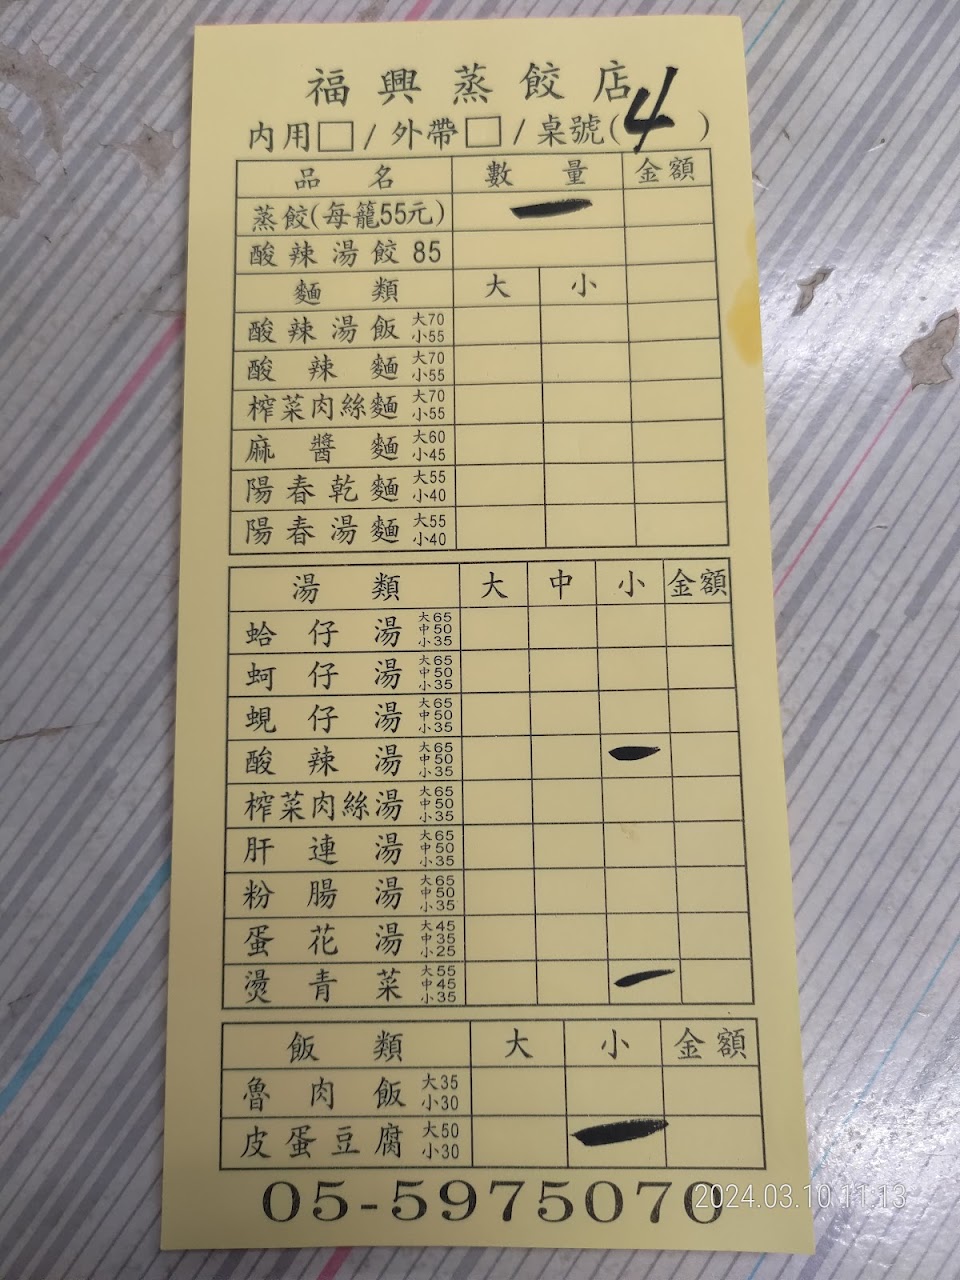 福興蒸餃店
內用□/外帶□/桌號(4)
品名 數量 金額
蒸餃(每籠55元) 一
酸辣湯餃 85
麵類 大 小
酸辣湯飯 大70 小55
酸辣麵 大70 小55
榨菜肉絲麵 大70 小55
麻醬麵 大60 小45
陽春乾麵 大55 小40
陽春湯麵 大55 小40
湯類 大 中 小 金額
蛤仔湯 大65 中50 小35
蚵仔湯 大65 中50 小35
蜆仔湯 大65 中50 小35
酸辣湯 大65 中50 小35 一
榨菜肉絲湯 大65 中50 小35
肝連湯 大65 中50 小35
粉腸湯 大65 中50 小35
蛋花湯 大45 中35 小25
燙青菜 大55 中45 小35 一
飯類 大 小 金額
魯肉飯 大35 小30
皮蛋豆腐 大50 小30 一
05-5975070
2024.03.10 11:13